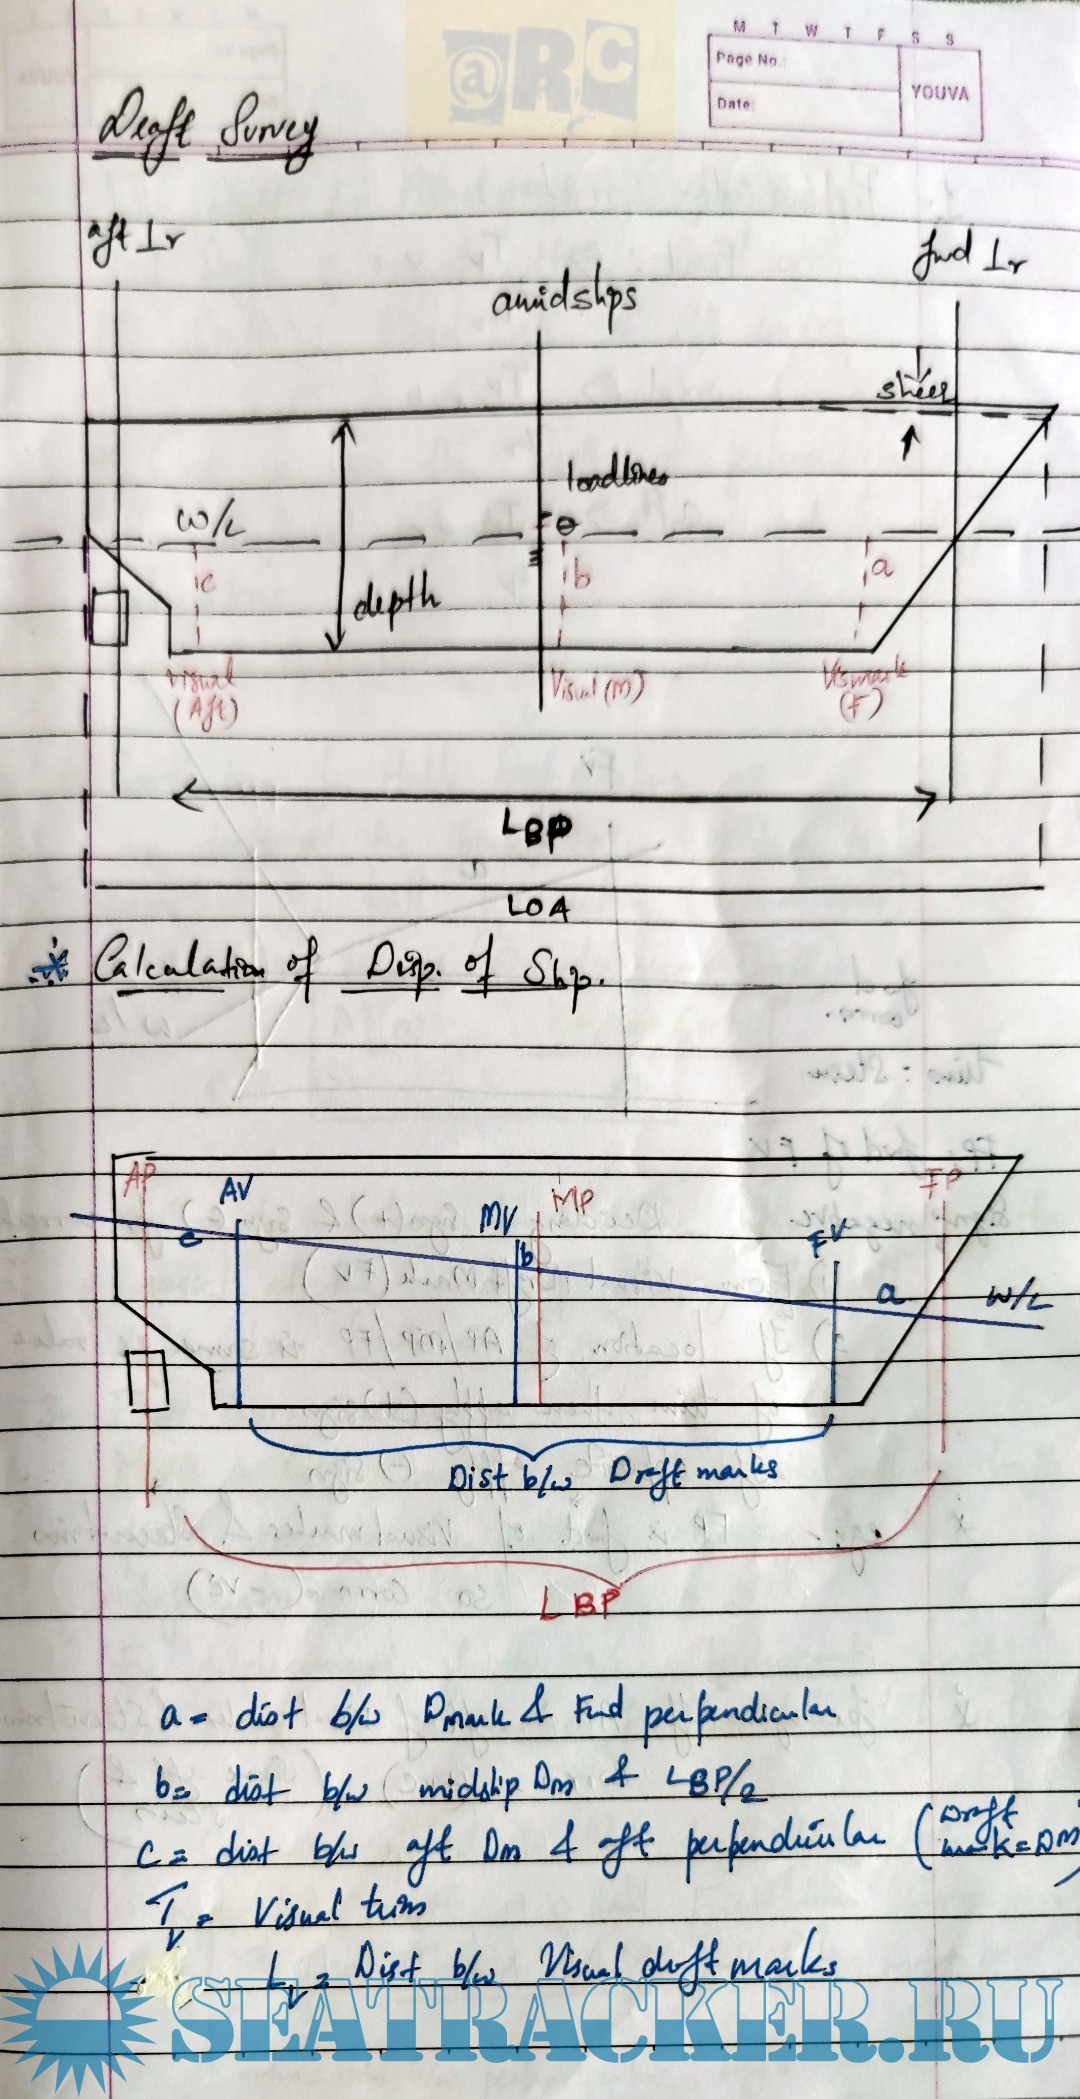 @RC
M T W T F S S
Page No.:
Date:
YOUVA
Draft Survey
aft ⊥r
fwd ⊥r
amidships
sheer
loadlines
W/L
c
b
a
depth
Visual (Aft)
Visual (M)
(F)
LBP
LOA
Calculation of Disp. of Ship.
AP
AV
MV
MP
FV
FP
c
b
a
W/L
Dist b/w Draft marks
LBP
a = dist b/w Dmark & Fwd perpendicular
b = dist b/w midship Dm & LBP/2
c = dist b/w aft Dm & aft perpendicular (Draft mark = DM)
Tv = Visual trim
Lv = Dist b/w Visual draft marks
SEATRACKER.RU